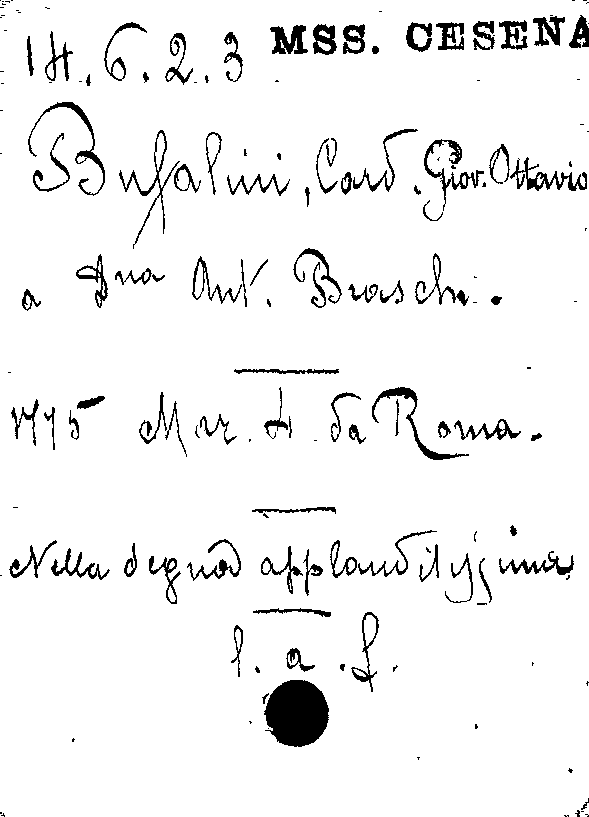 14.6.2.3 MSS. CESENA
Bufalini, Card. Giov. Ottavio
a Dna Ant. Braschi.
1775 Mar. 4. da Roma.
Nella degna applauditissima
l. a. f.